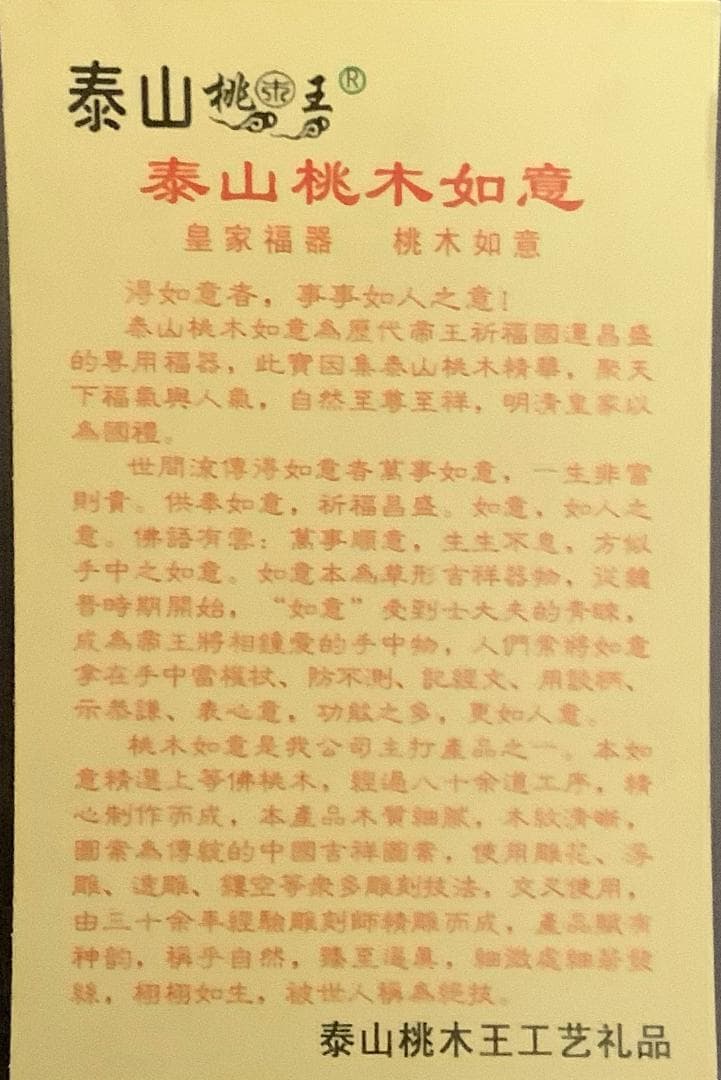 泰山桃木王®
泰山桃木如意
皇家福器 桃木如意
得如意者，事事如人之意！
泰山桃木如意為歷代帝王祈福國運昌盛
的專用福器，此寶因集泰山桃木精華，聚天
下福氣與人氣，自然至尊至祥，明清皇家以
為國禮。
世間流傳得如意者萬事如意，一生非富
則貴。供奉如意，祈福昌盛。如意，如人之
意。佛語有雲：萬事順意，生生不息，方似
手中之如意。如意本為草形吉祥器物，從魏
晉時期開始，“如意”受到士大夫的青睞，
成為帝王將相鐘愛的手中物，人們常將如意
拿在手中當權杖、防不測、記經文、用談柄、
示恭謙、表心意，功能之多，更如人意。
桃木如意是我公司主打產品之一。本如
意精選上等佛桃木，經過八十余道工序，精
心制作而成，本產品木質細膩，木紋清晰，
圖案為傳統的中國吉祥圖案，使用雕花、浮
雕、透雕、鏤空等眾多雕刻技法，交叉使用，
由三十余年經驗雕刻師精雕而成，產品賦有
神韵，稱乎自然，臻至逼真，細微處細若發
絲，栩栩如生，被世人稱為絕技。
泰山桃木王工艺礼品